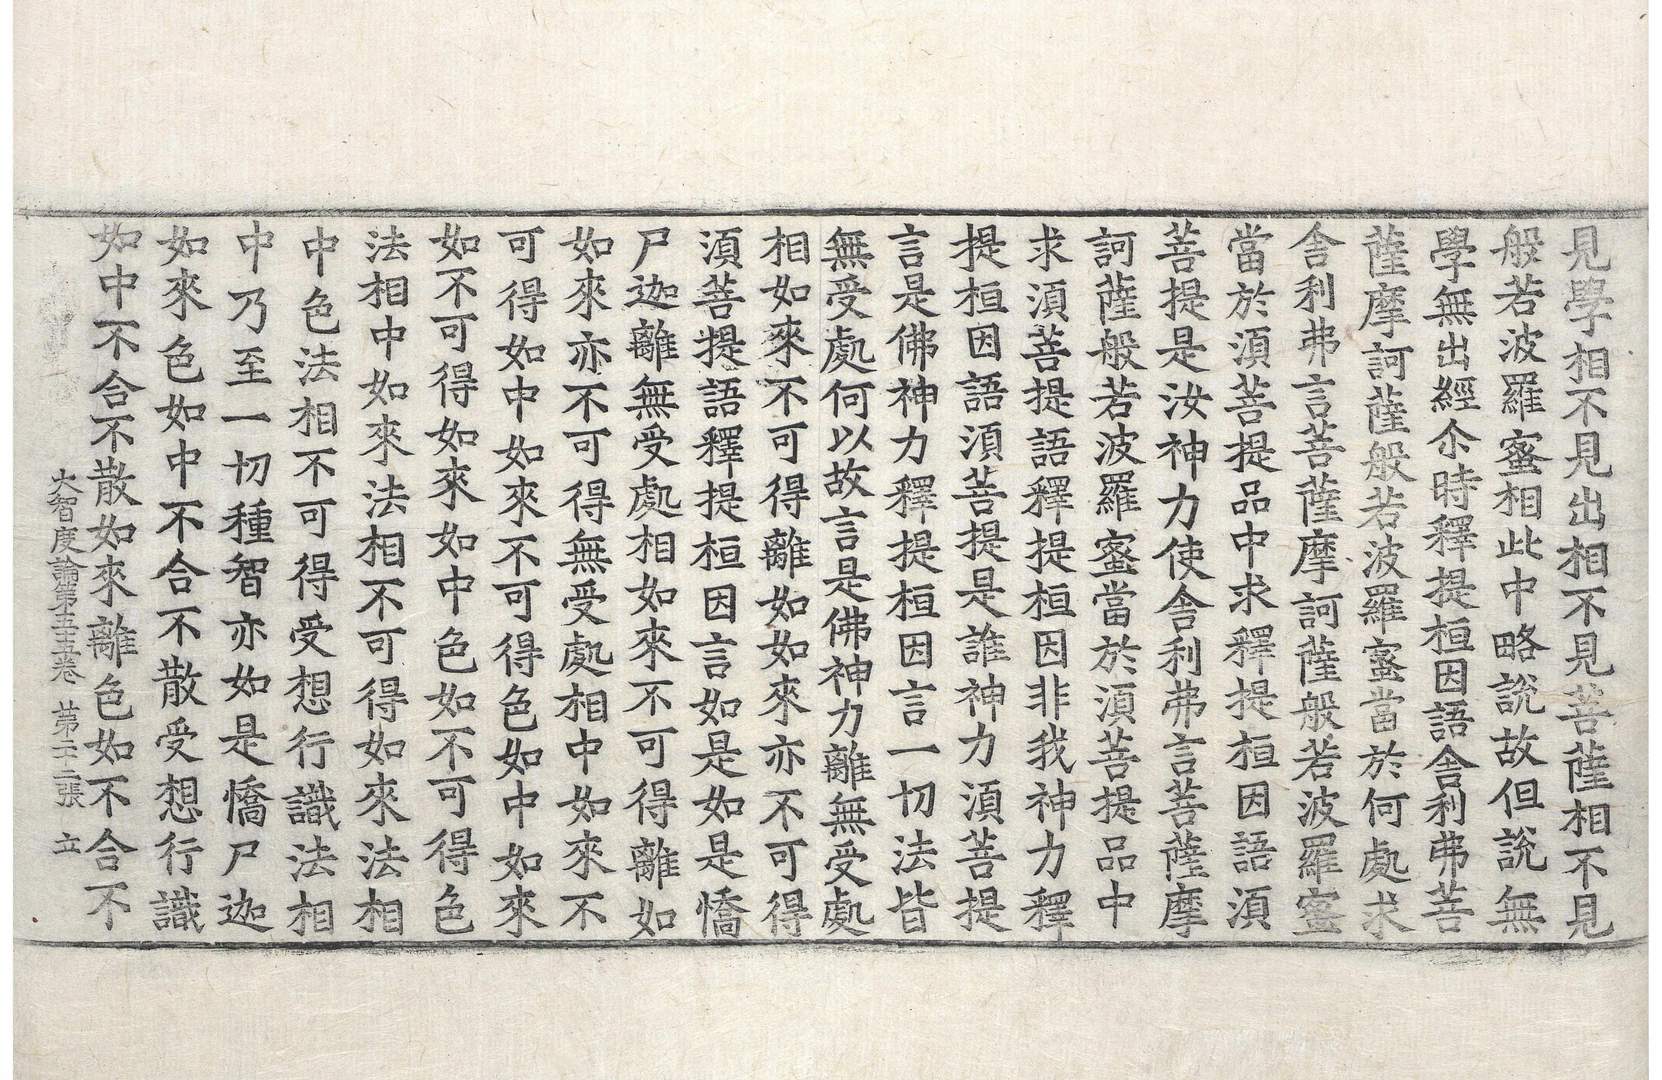 見學相不見出相不見菩薩相不見
般若波羅蜜相此中略說故但說無
學無出經尒時釋提桓因語舎利弗菩
薩摩訶薩般若波羅蜜當於何處求
舎利弗言菩薩摩訶薩般若波羅蜜
當於湏菩提品中求釋提桓因語湏
菩提是汝神力使舎利弗言菩薩摩
訶薩般若波羅蜜當於湏菩提品中
求湏菩提語釋提桓因非我神力釋
提桓因語湏菩提是誰神力湏菩提
言是佛神力釋提桓因言一切法皆
無受處何以故言是佛神力離無受處
相如來不可得離如如來亦不可得
湏菩提語釋提桓因言如是如是憍
尸迦離無受處相如來不可得離如
如來亦不可得無受處相中如來不
可得如中如來不可得色如中如來
如不可得如來如中色如不可得色
法相中如來法相不可得如來法相
中色法相不可得受想行識法相
中乃至一切種智亦如是憍尸迦
如來色如中不合不散受想行識
如中不合不散如來離色如不合不
大智度論第五十五卷 苐二十二張 立